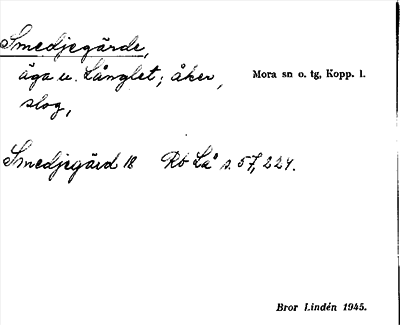 Smedjegärde,
äga u. Långlet; åker,
Mora sn o. tg, Kopp. l.
slog,
Smedjegärd 18 Rö Lå s. 57, 224.
Bror Lindén 1945.